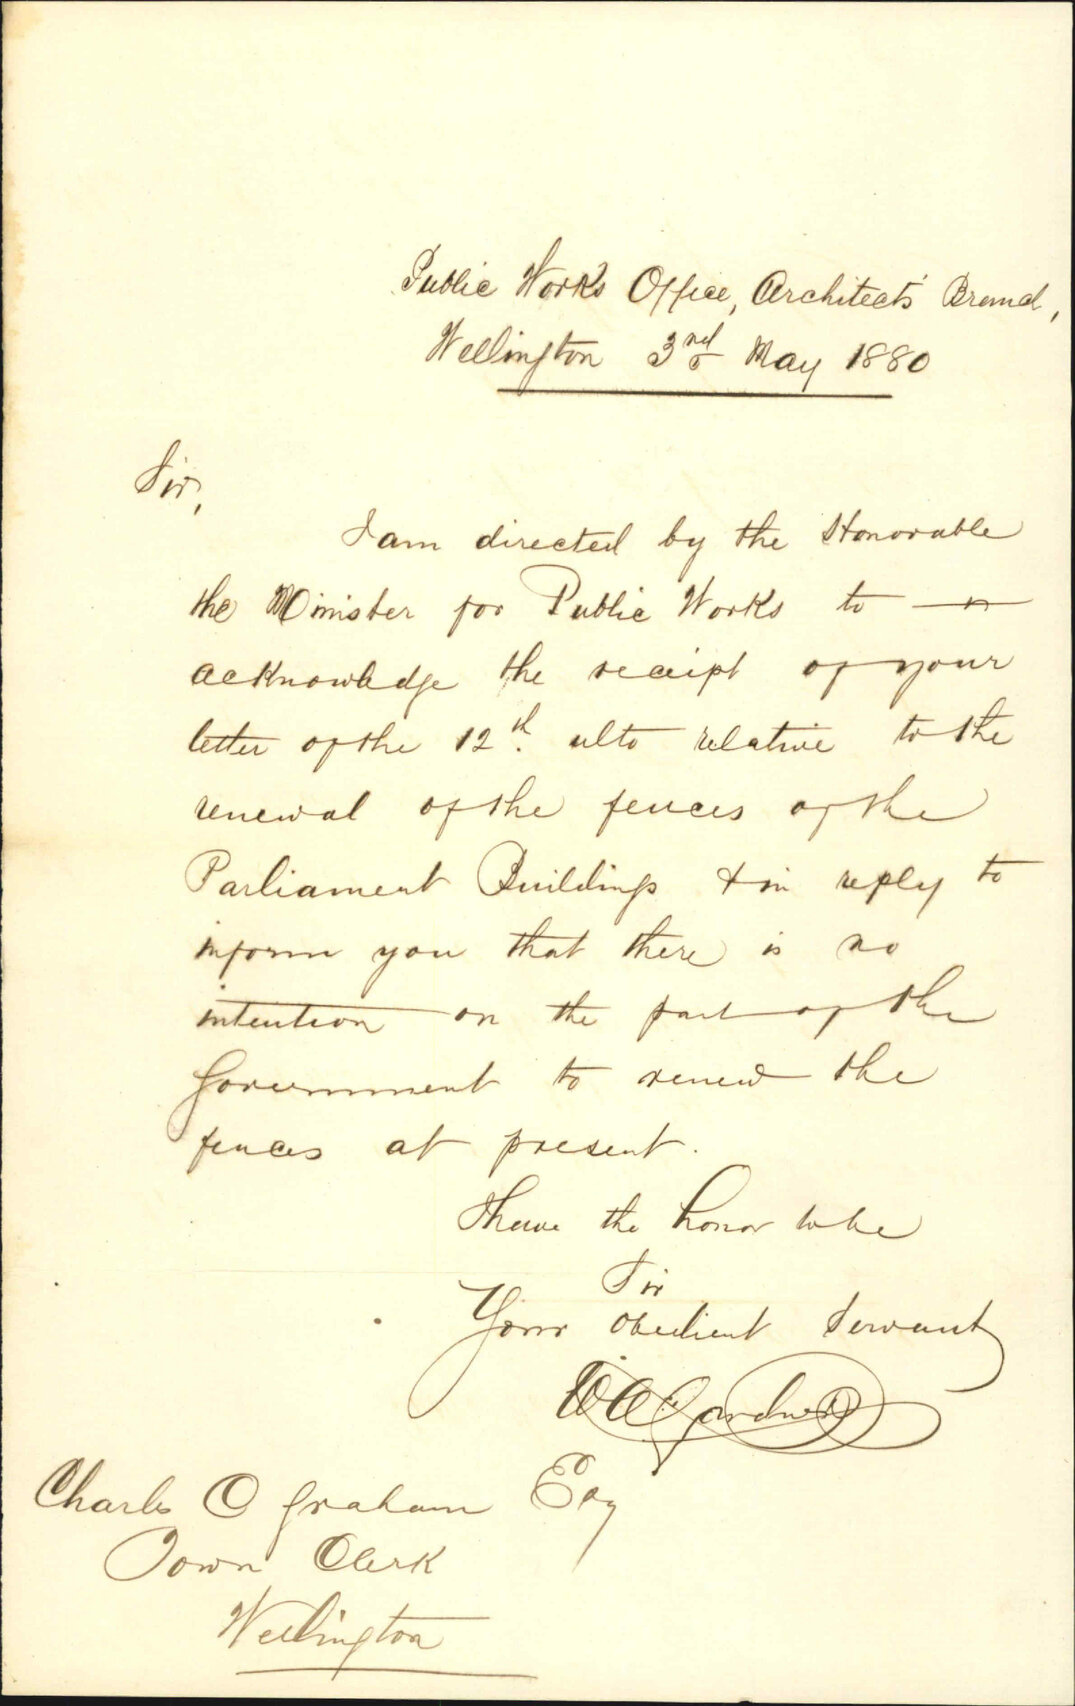 Public Works Office, Architects Branch,
Wellington 3rd May 1880
Sir,
I am directed by the Honorable
the Minister for Public Works to
acknowledge the receipt of your
letter of the 12th. ulto relative to the
renewal of the fences of the
Parliament Buildings & in reply to
inform you that there is no
intention on the part of the
Government to renew the
fences at present.
I have the honor to be
Sir
Your obedient Servant
Charles C Graham Esq
Town Clerk
Wellington